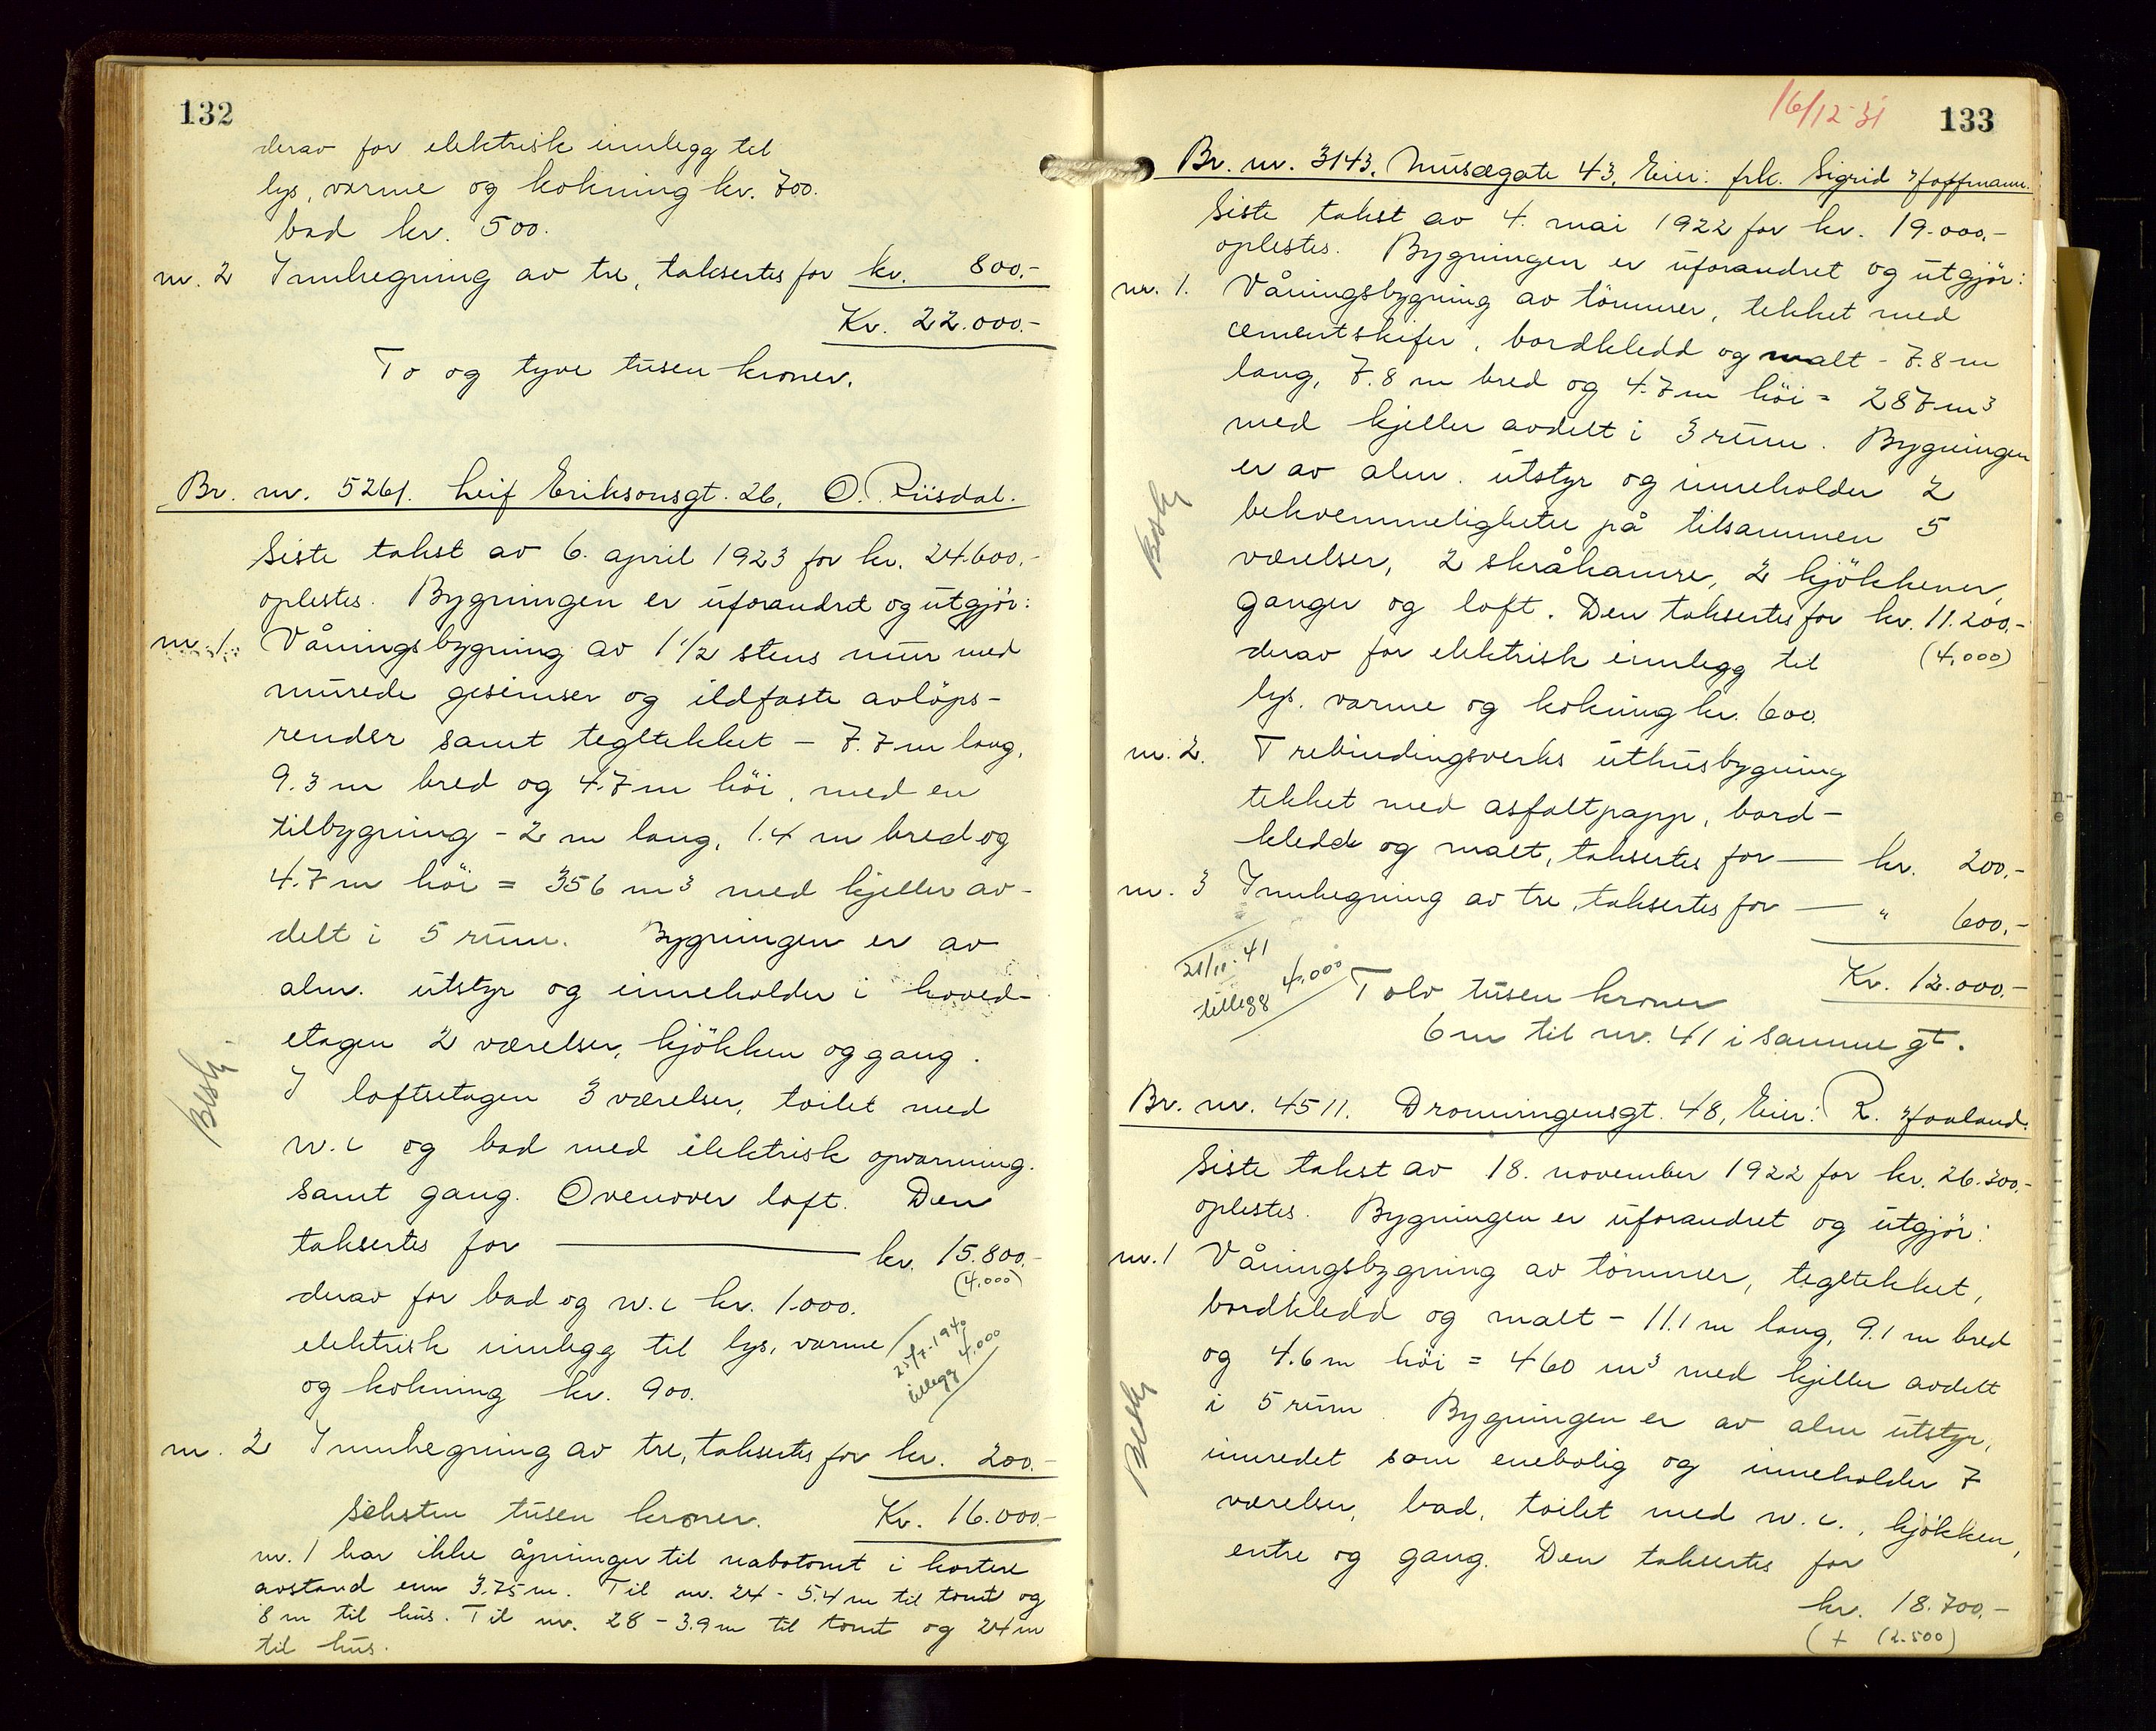 132
derav for elektrisk innlegg til
lys, varme og kokning kr. 700.
bad kr. 500.
nr. 2 Innhegning av tre, taksertes for kr. 800.-
Kr. 22.000.-
To og tyve tusen kroner.
Br. nr. 5261. Leif Eriksonsgt. 26, O. Riisdal.
Siste takst av 6. april 1923 for kr. 24.600.-
oplestes. Bygningen er uforandret og utgjör:
nr. 1. Våningsbygning av 1 1/2 stens mur med
murede gesimser og ildfaste avlöps-
render samt tegltekket - 7.7 m lang,
9.3 m bred og 4.7 m höi, med en
tilbygning - 2 m lang, 1.4 m bred og
4.7 m höi = 356 m³ med kjeller av-
delt i 5 rum. Bygningen er av
alm. utstyr og inneholder i hoved-
etagen 2 værelser, kjökken og gang.
I loftsetagen 3 værelser, toilet med
w.c og bad med elektrisk opvarming.
samt gang. Ovenover loft. Den
taksertes for kr. 15.800.-
(4.000)
derav for bad og w.c kr. 1.000.
elektrisk innlegg til lys, varme
og kokning kr. 900.
25/7-1940
tillegg 4.000
Besk.
nr. 2 Innhegning av tre, taksertes for kr. 200.-
Seksten tusen kroner. Kr. 16.000.-
nr. 1 har ikke åpninger til nabotomt i kortere
avstand enn 3.75 m. Til nr. 24 - 5.4 m til tomt og
8 m til hus. Til nr. 28 - 3.9 m til tomt og 24 m
til hus.
16/12-31
133
Br. nr. 3143. Musægate 43, Eier: frk. Sigrid Hoffmann.
Siste takst av 4. mai 1922 for kr. 19.000.-
oplestes. Bygningen er uforandret og utgjör:
nr. 1. Våningsbygning av tömmer, tekket med
cementskifer, bordkledd og malt - 7.8 m
lang, 7.8 m bred og 4.7 m höi = 287 m³
med kjeller avdelt i 3 rum. Bygningen
er av alm. utstyr og inneholder 2
bekvemmeligheter på tilsammen 5
værelser, 2 skråkamre, 2 kjökkener,
ganger og loft. Den taksertes for kr. 11.200.-
(4,000)
derav for elektrisk innlegg til
lys, varme og kokning kr. 600.
Besk
nr. 2. Trebindingsverks uthusbygning
tekket med asfaltpapp, bord-
kledd og malt, taksertes for kr. 200.-
nr. 3 Innhegning av tre, taksertes for " 600.-
Kr. 12.000.-
21/11-41
tillegg 4,000
Tolv tusen kroner
6 m til nr. 41 i samme gt.
Br. nr. 4511. Dronningensgt. 48, Eier: R. Haaland.
Siste takst av 18. november 1922 for kr. 26.300.-
oplestes. Bygningen er uforandret og utgjör:
nr. 1 Våningsbygning av tömmer, tegltekket,
bordkledd og malt - 11.1 m lang, 9.1 m bred
og 4.6 m höi = 460 m³ med kjeller avdelt
i 5 rum. Bygningen er av alm utstyr,
innredet som enebolig og inneholder 7
værelser, bad, toilet med w.c., kjökken,
entre og gang. Den taksertes for
kr. 18.700.-
(+ (2.500)
Besk